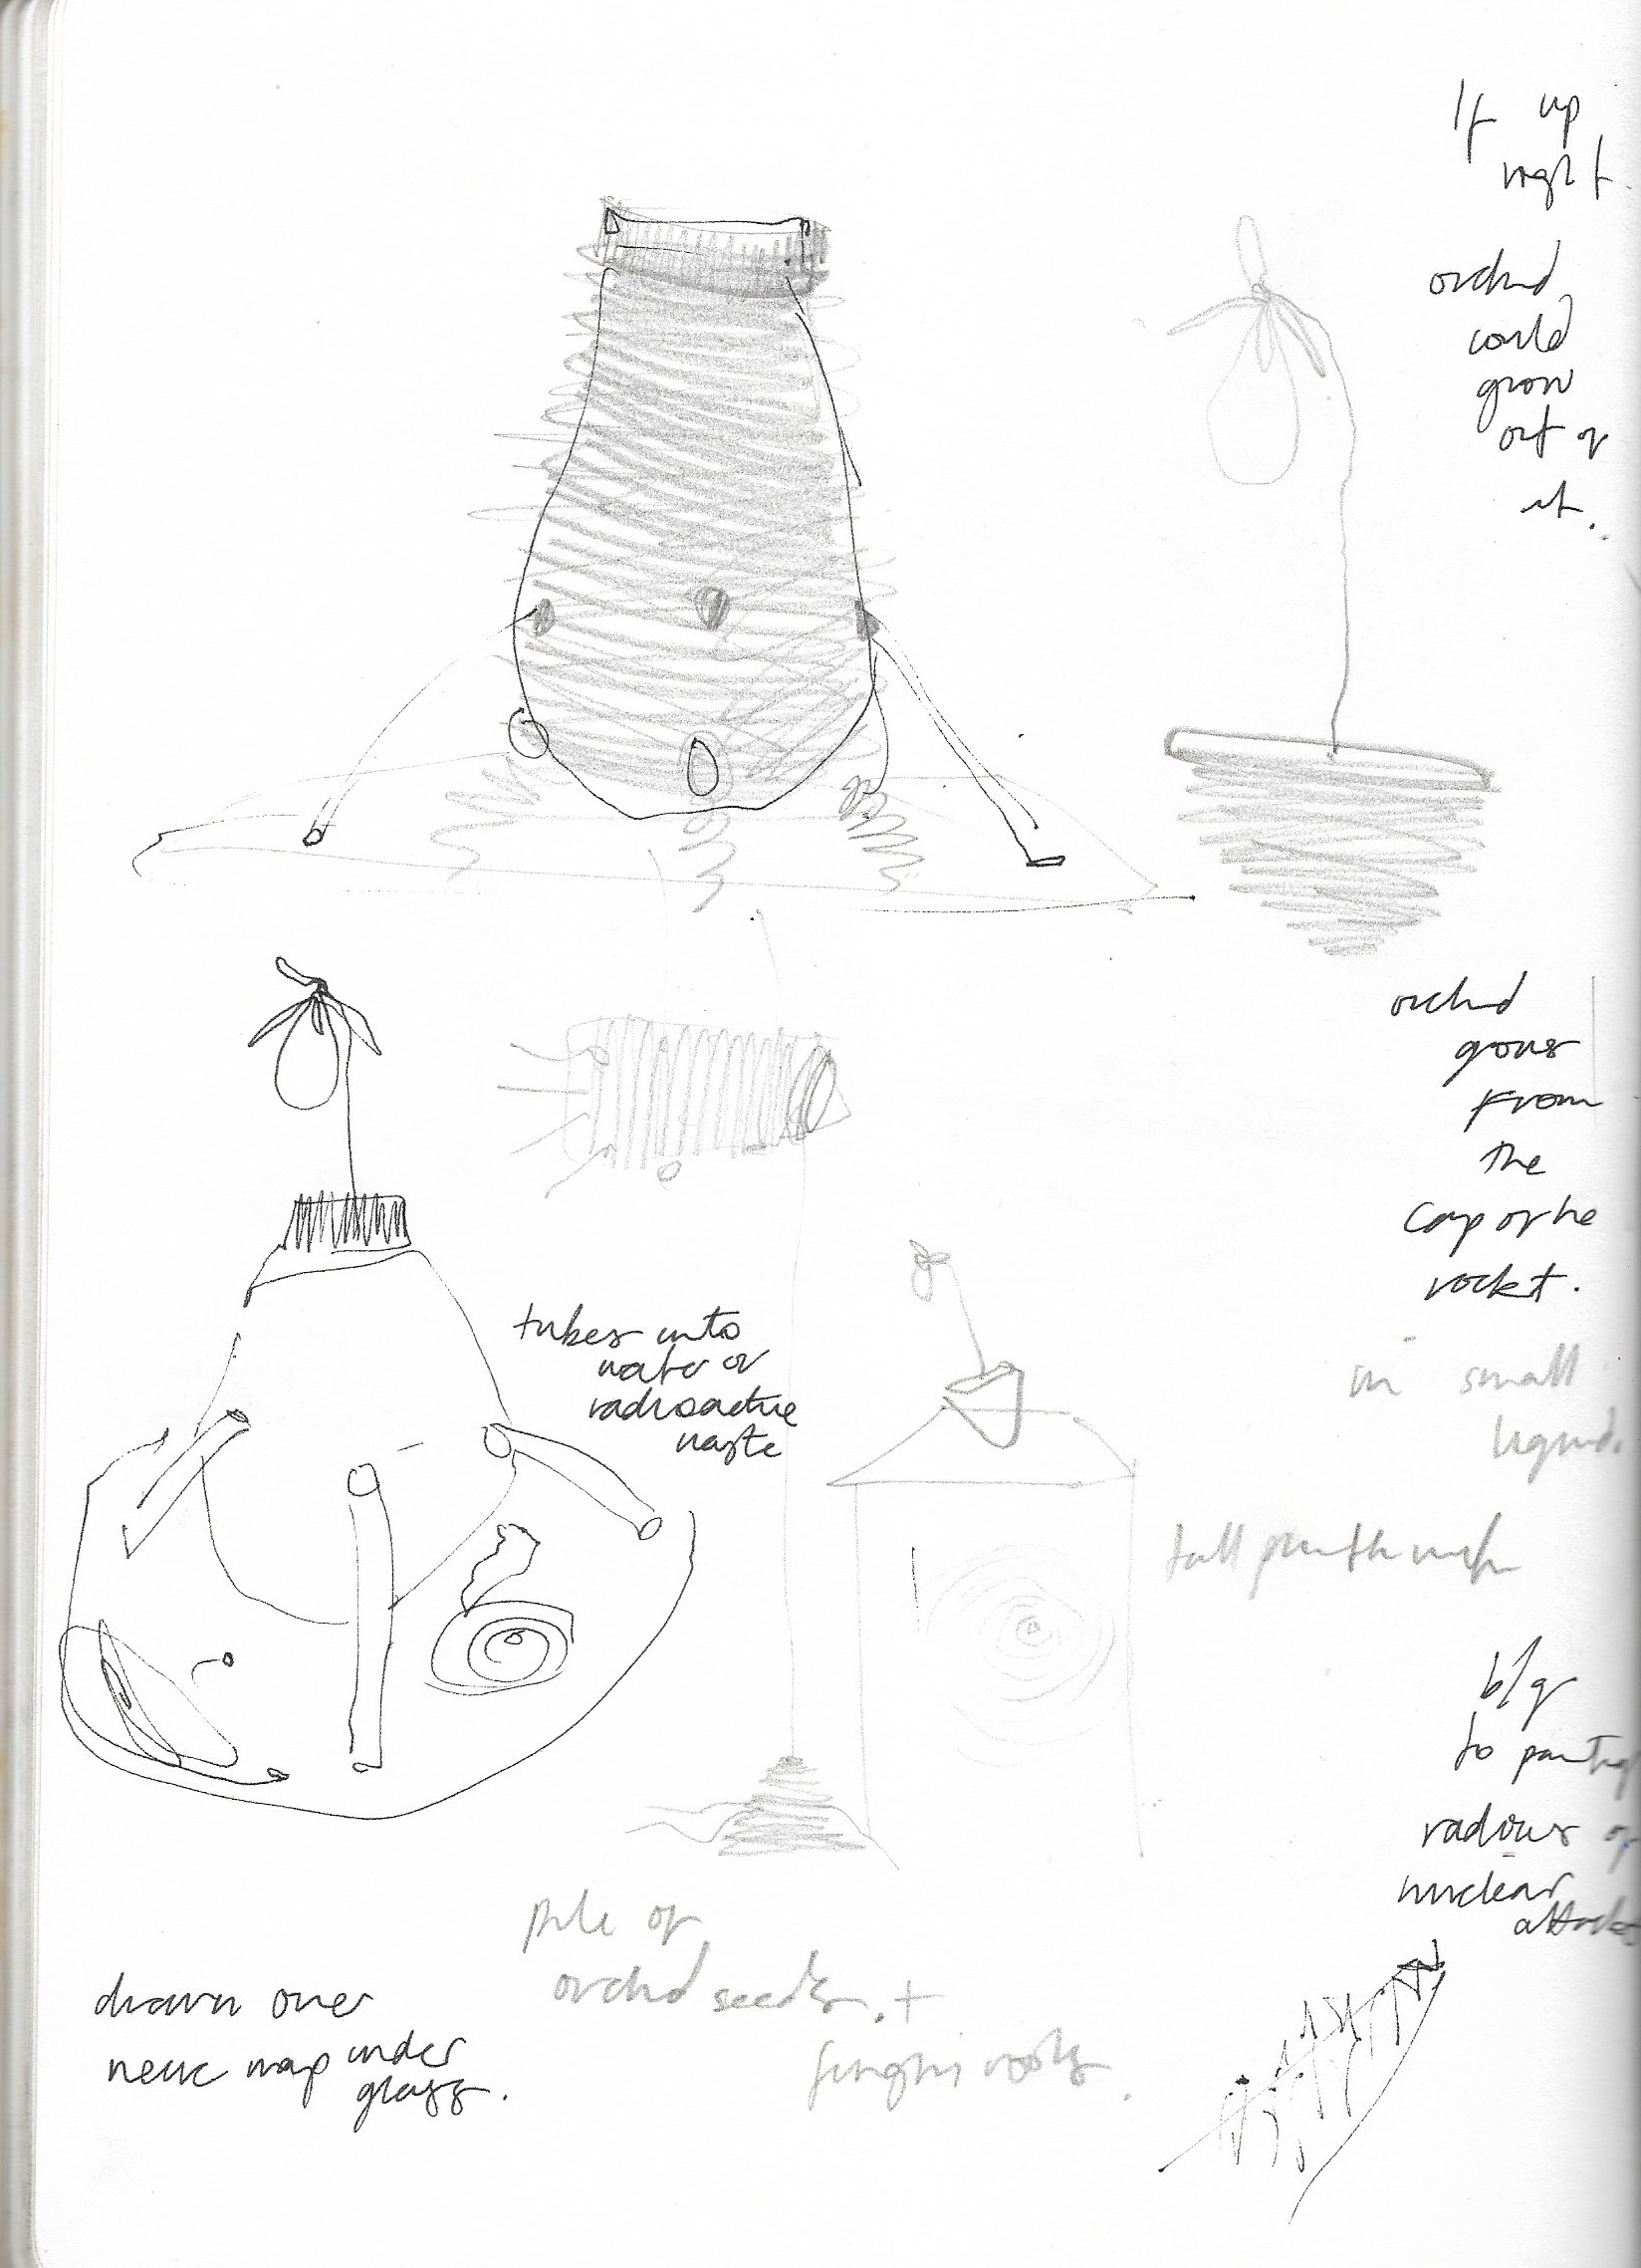 If up
right
orchid
could
grow
out of
it.
orchid
grows
from
the
cap of the
rocket.
tubes into
water or
radioactive
waste
in small
liquid.
tall
b/g
to
radius of
nuclear
attacks
pile of
orchid seeds. +
funghi roots.
drawn over
map under
glass.